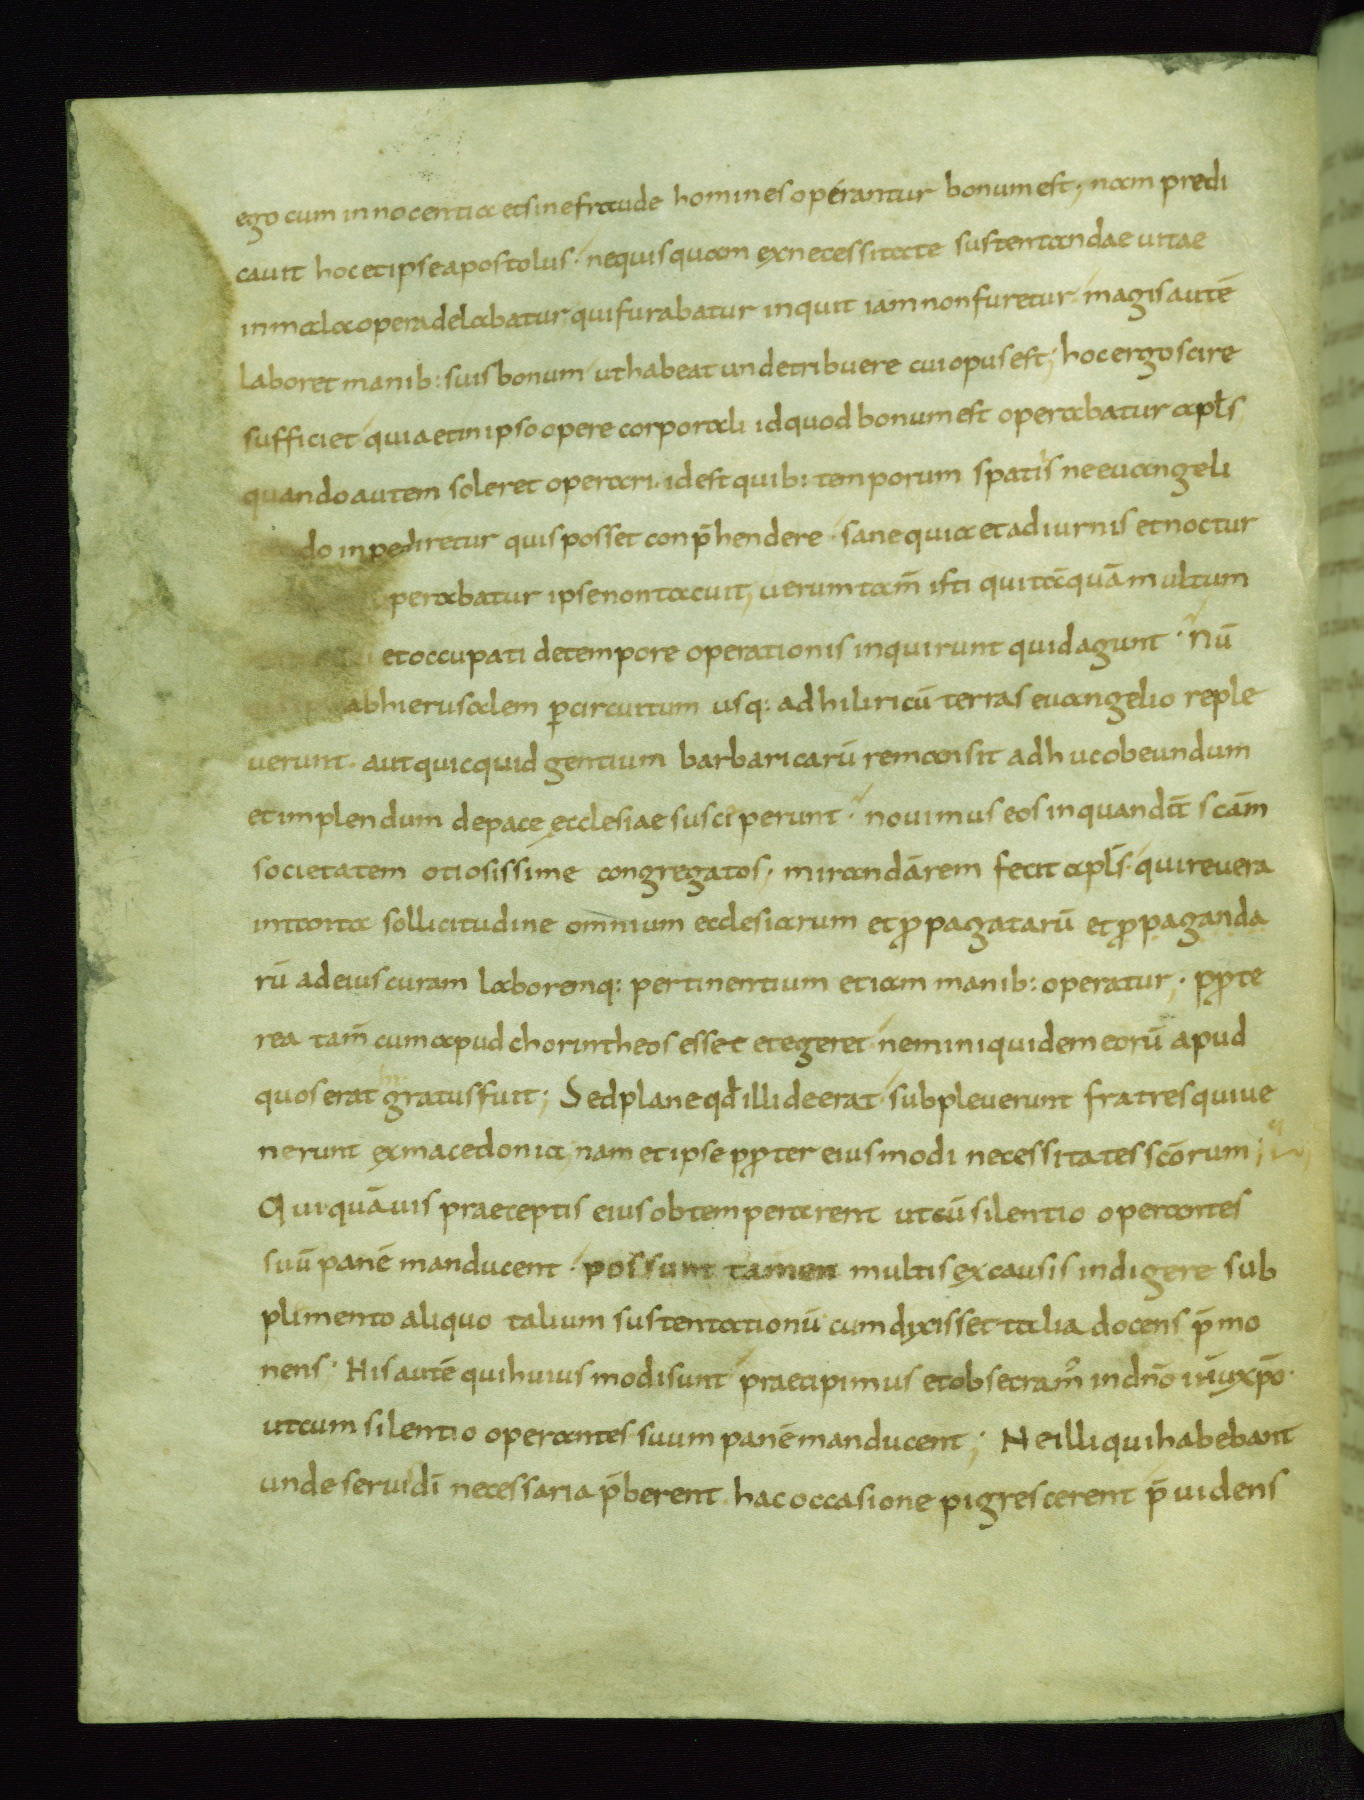 ego cum innocentia et sine fraude homines operantur bonum est; nam predi
cauit hoc et ipse apostolus · ne quisquam ex necessitate sustentandae uitae
in mala opera delabatur qui furabatur inquit iam non furetur · magis autē
laboret manib: suis bonum ut habeat unde tribuere cui opus est; hoc ergo scire
sufficiet quia et in ipso opere corporali id quod bonum est operabatur apłs
quando autem soleret operari · id est quib: temporum spatiis ne euangeli
do inpediretur quis posset conp̄hendere · sane quia et a diurnis et noctur
perabatur ipse non tacuit, uerum tam̄ isti qui tāquā multum
et occupati de tempore operationis inquirunt quid agunt · Nū
ab hierusalem ꝑ circuitum usq: ad hiliricū terras euangelio reple
uerunt · aut quicquid gentium barbaricarū remansit adhuc obeundum
et implendum de pace ecclesiae susciperunt · nouimus eos in quandā scām
societatem otiosissime congregatos · mirandā rem fecit apłs · qui reuera
in tanta sollicitudine omnium ecclesiarum et ꝓpagatarū et ꝓpaganda
rū ad eius curam laboremq: pertinentium etiam manib: operatur · pꝓte
rea tam̄ cum apud chorintheos esset et egeret nemini quidem eorū apud
quos erat gratus fuit; Sed plane qđ illi deerat subpleuerunt fratres qui ue
nerunt ex macedonia nam et ipse pꝓter eiusmodi necessitates scōrum;
Qui quāuis praeceptis eius obtemperarent ut cū silentio operantes
suū panē manducent · possunt tamen multis ex causis indigere sub
plimento aliquo talium sustentationū cum dixisset talia docens p̄mo
nens · His autē qui huius modi sunt praecipimus et obsecram᾽ in dn̄o ih̄u xp̄o ·
ut cum silentio operantes suum panē manducent; Ne illi qui habebant
unde seruis dī necessaria p̄berent hac occasione pigrescerent p̄uidens